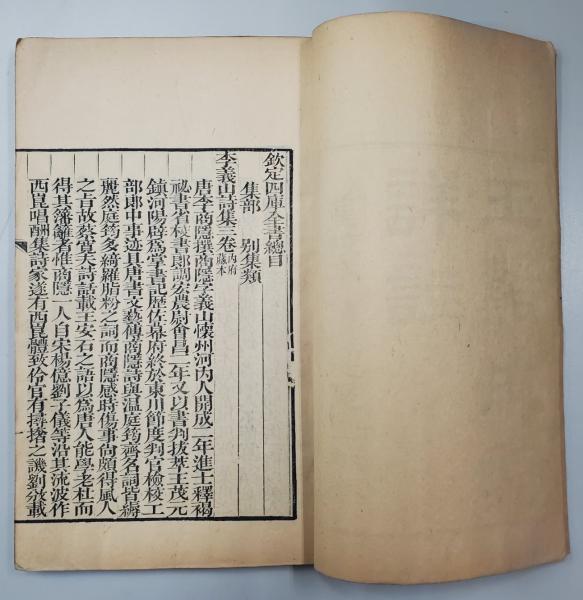 欽定四庫全書總目
集部　別集類
李義山詩集三卷內府藏本
唐李商隱撰商隱字義山懷州河內人開成二年進士釋褐
祕書省校書郎調宏農尉會昌二年又以書判拔萃王茂元
鎮河陽辟爲掌書記歷佐幕府終於東川節度判官檢校工
部郎中事迹具唐書文藝傳商隱詩與溫庭筠齊名詞皆縟
麗然庭筠多綺羅脂粉之詞而商隱感時傷事尙頗得風人
之旨故蔡寬夫詩話載王安石之語以爲唐人能學老杜而
得其藩籬者惟商隱一人自宋楊億劉子儀等沿其流波作
西崑唱酬集詩家遂有西崑體致伶官有撏撦之譏劉攽載